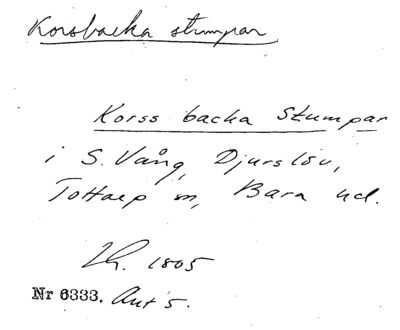 Korsbacka stumpar
Korss backa Stumpar
i S. Vång, Djurslöv,
Tottarp sn, Bara hd.
1805
Nr 6333. Akt 5.